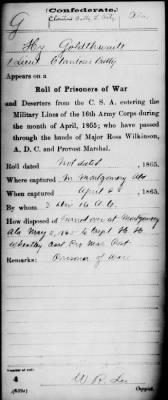 (Confederate.)
G Clanton's Batty L. Arty. Ala.
Hy Goldthwait
1 Lieut Clantons Batty
Appears on a
Roll of Prisoners of War
and Deserters from the C. S. A. entering the
Military Lines of the 16th Army Corps during
the month of April, 1865; who have passed
through the hands of Major Rosa Wilkinson,
A. D. C. and Provost Marshal.
Roll dated Not dated, 1865.
Where captured In Montgomery Ala
When captured April, 1865.
By whom 3 16 A.C.
How disposed of Turned over at Montgomery
Ala May 2, 1865 to Capt
Wheatley Asst Pro Mar
Remarks: Prisoner of War
Number of roll:
4
W R Lee
Copyist.